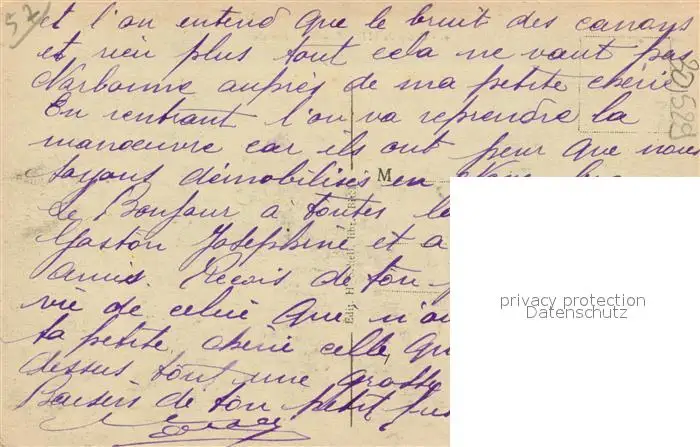 57
et l'on entend que le bruit des canons
et rien plus tout cela ne vaut pas
Narbonne auprès de ma petite chérie
En rentrant l'on va reprendre la
manoeuvre car ils ont peur que nous
soyons démobilisés en
le Bonjour à toutes
Gaston Josephine et a
Amis. Reçois de ton
vie de celui que n'ou
ta petite chérie celle qu
dessus tout une grosse
Baisers de ton petit
M
Edit.
20529
privacy protection
Datenschutz